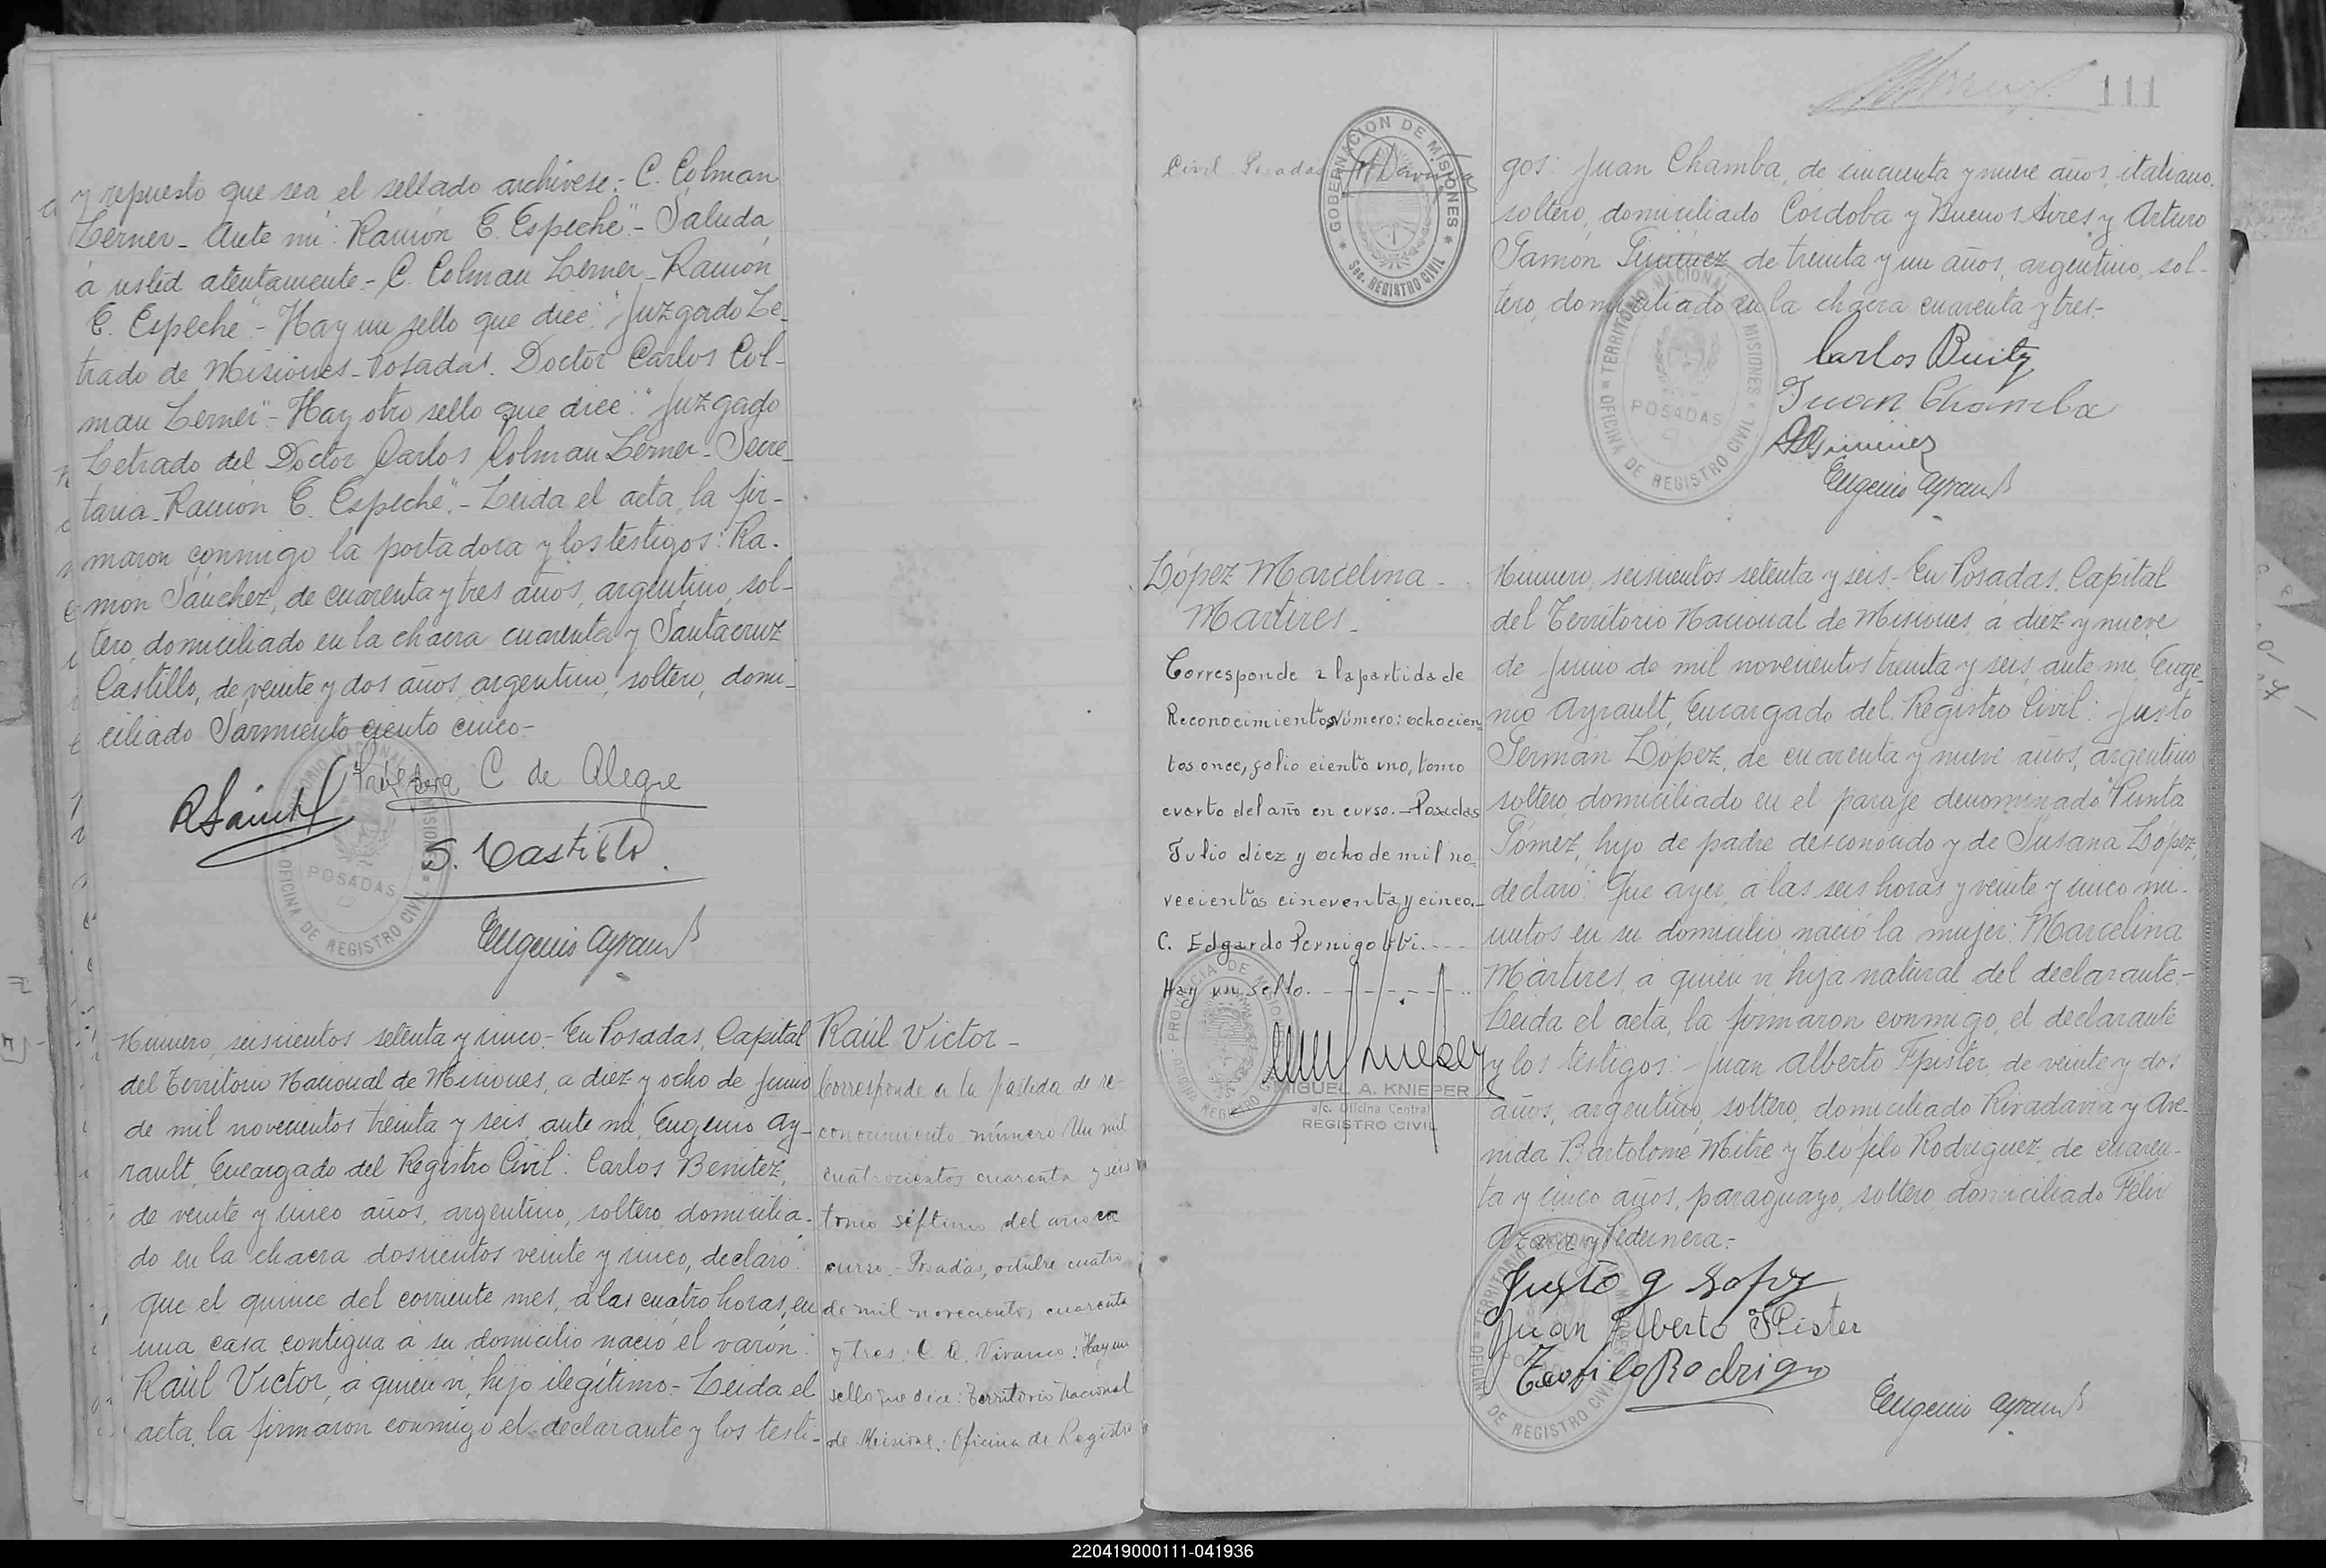 y repuesto que sea el sellado archivese.- C. Colman
Lerner - Ante mi: Ramón E. Espeche".- Saluda
á usted atentamente.- C. Colman Lerner - Ramón
E. Espeche".- Hay un sello que dice: "Juzgado Le-
trado de Misiones - Posadas. Doctor Carlos Col-
man Lerner".- Hay otro sello que dice: "Juzgado
Letrado del Doctor Carlos Colman Lerner - Secre-
taria - Ramón E. Espeche".- Leida el acta, la fir-
maron conmigo la portadora y los testigos: Ra-
món Sánchez, de cuarenta y tres años, argentino, sol-
tero, domiciliado en la chacra cuarenta y Santacruz
Castillo, de veinte y dos años, argentino, soltero, domi-
ciliado Sarmiento ciento cinco.-
C de Alegre
RSánch
S. Castillo
Eugenio Ayrault
TERRITORIO NACIONAL DE MISIONES
POSADAS
OFICINA DE REGISTRO CIVIL
Número, seiscientos setenta y cinco.- En Posadas, Capital
del Territorio Nacional de Misiones, a diez y ocho de Junio
de mil novecientos treinta y seis, ante mi, Eugenio Ay-
rault, Encargado del Registro Civil: Carlos Benitez,
de veinte y cinco años, argentino, soltero, domicilia-
do en la chacra doscientos veinte y cinco, declaró:
que el quince del corriente mes, á las cuatro horas, en
una casa contigua á su domicilio nació el varón:
Raúl Victor, á quien vi, hijo ilegítimo.- Leida el
acta, la firmaron conmigo el declarante y los testi-
Raúl Victor -
Corresponde a la partida de re-
conocimiento número Un mil
cuatrocientos cuarenta y seis
tomo séptimo del año en
curso.- Posadas, octubre cuatro
de mil novecientos cuarenta
y tres: C. A. Vivanco: Hay un
sello que dice: Territorio Nacional
de Misiones. Oficina de Registro
111
Civil Posadas
GOBERNACION DE MISIONES
Sec. REGISTRO CIVIL
gos: Juan Chamba, de cincuenta y nueve años, italiano,
soltero, domiciliado Cordoba y Buenos Aires y Arturo
Ramón Gimenez, de treinta y un años, argentino, sol-
tero, domiciliado en la chacra cuarenta y tres.-
TERRITORIO NACIONAL DE MISIONES
POSADAS
OFICINA DE REGISTRO CIVIL
Carlos Benitz
Juan Chamba
Gimenez
Eugenio Ayrault
López Marcelina -
Martires -
Corresponde a la partida de
Reconocimientos Número: ochocien
tos once, folio ciento uno, tomo
cuarto del año en curso.-Posadas
Julio diez y ocho de mil no-
vecientos cincuenta y cinco.-
C. Edgardo Pernigotti.---
Hay un sello.-------
PROVINCIA DE MISIONES
OFICINA REGISTRO CIVIL
MIGUEL A. KNIEPER
a/c. Oficina Central
REGISTRO CIVIL
Número, seiscientos setenta y seis.- En Posadas, Capital
del Territorio Nacional de Misiones, á diez y nueve
de Junio de mil novecientos treinta y seis, ante mi, Euge-
nio Ayrault, Encargado del Registro Civil: Justo
Germán López, de cuarenta y nueve años, argentino
soltero, domiciliado en el paraje denominado "Punta
Gómez", hijo de padre desconocido y de Susana López,
declaró: Que ayer, á las seis horas y veinte y cinco mi-
nutos en su domicilio nació la mujer: Marcelina
Mártires, á quien vi, hija natural del declarante.-
Leida el acta, la firmaron conmigo, el declarante
y los testigos: Juan Alberto Fpister, de veinte y dos
años, argentino, soltero, domiciliado Rivadavia y Ave-
nida Bartolomé Mitre y Teofilo Rodriguez, de cuaren-
ta y cinco años, paraguayo, soltero, domiciliado Félix
Azara y Pedernera.-
TERRITORIO NACIONAL DE MISIONES
POSADAS
OFICINA DE REGISTRO CIVIL
Justo G Lopez
Juan Alberto Fpister
Teofilo Rodrigu
Eugenio Ayrault
220419000111-041936